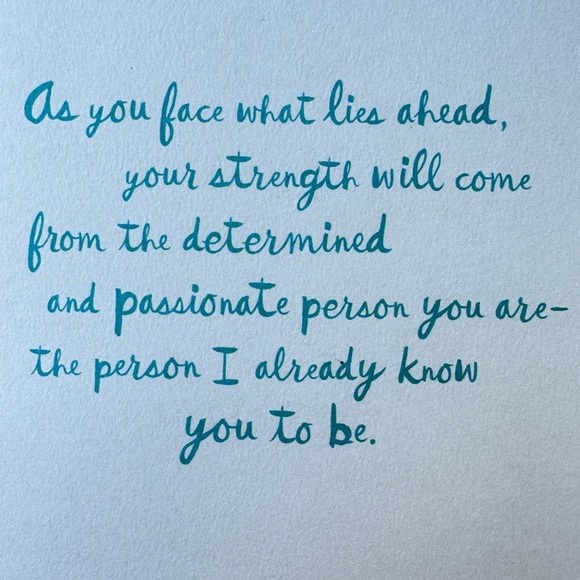 As you face what lies ahead,
your strength will come
from the determined
and passionate person you are-
the person I already know
you to be.